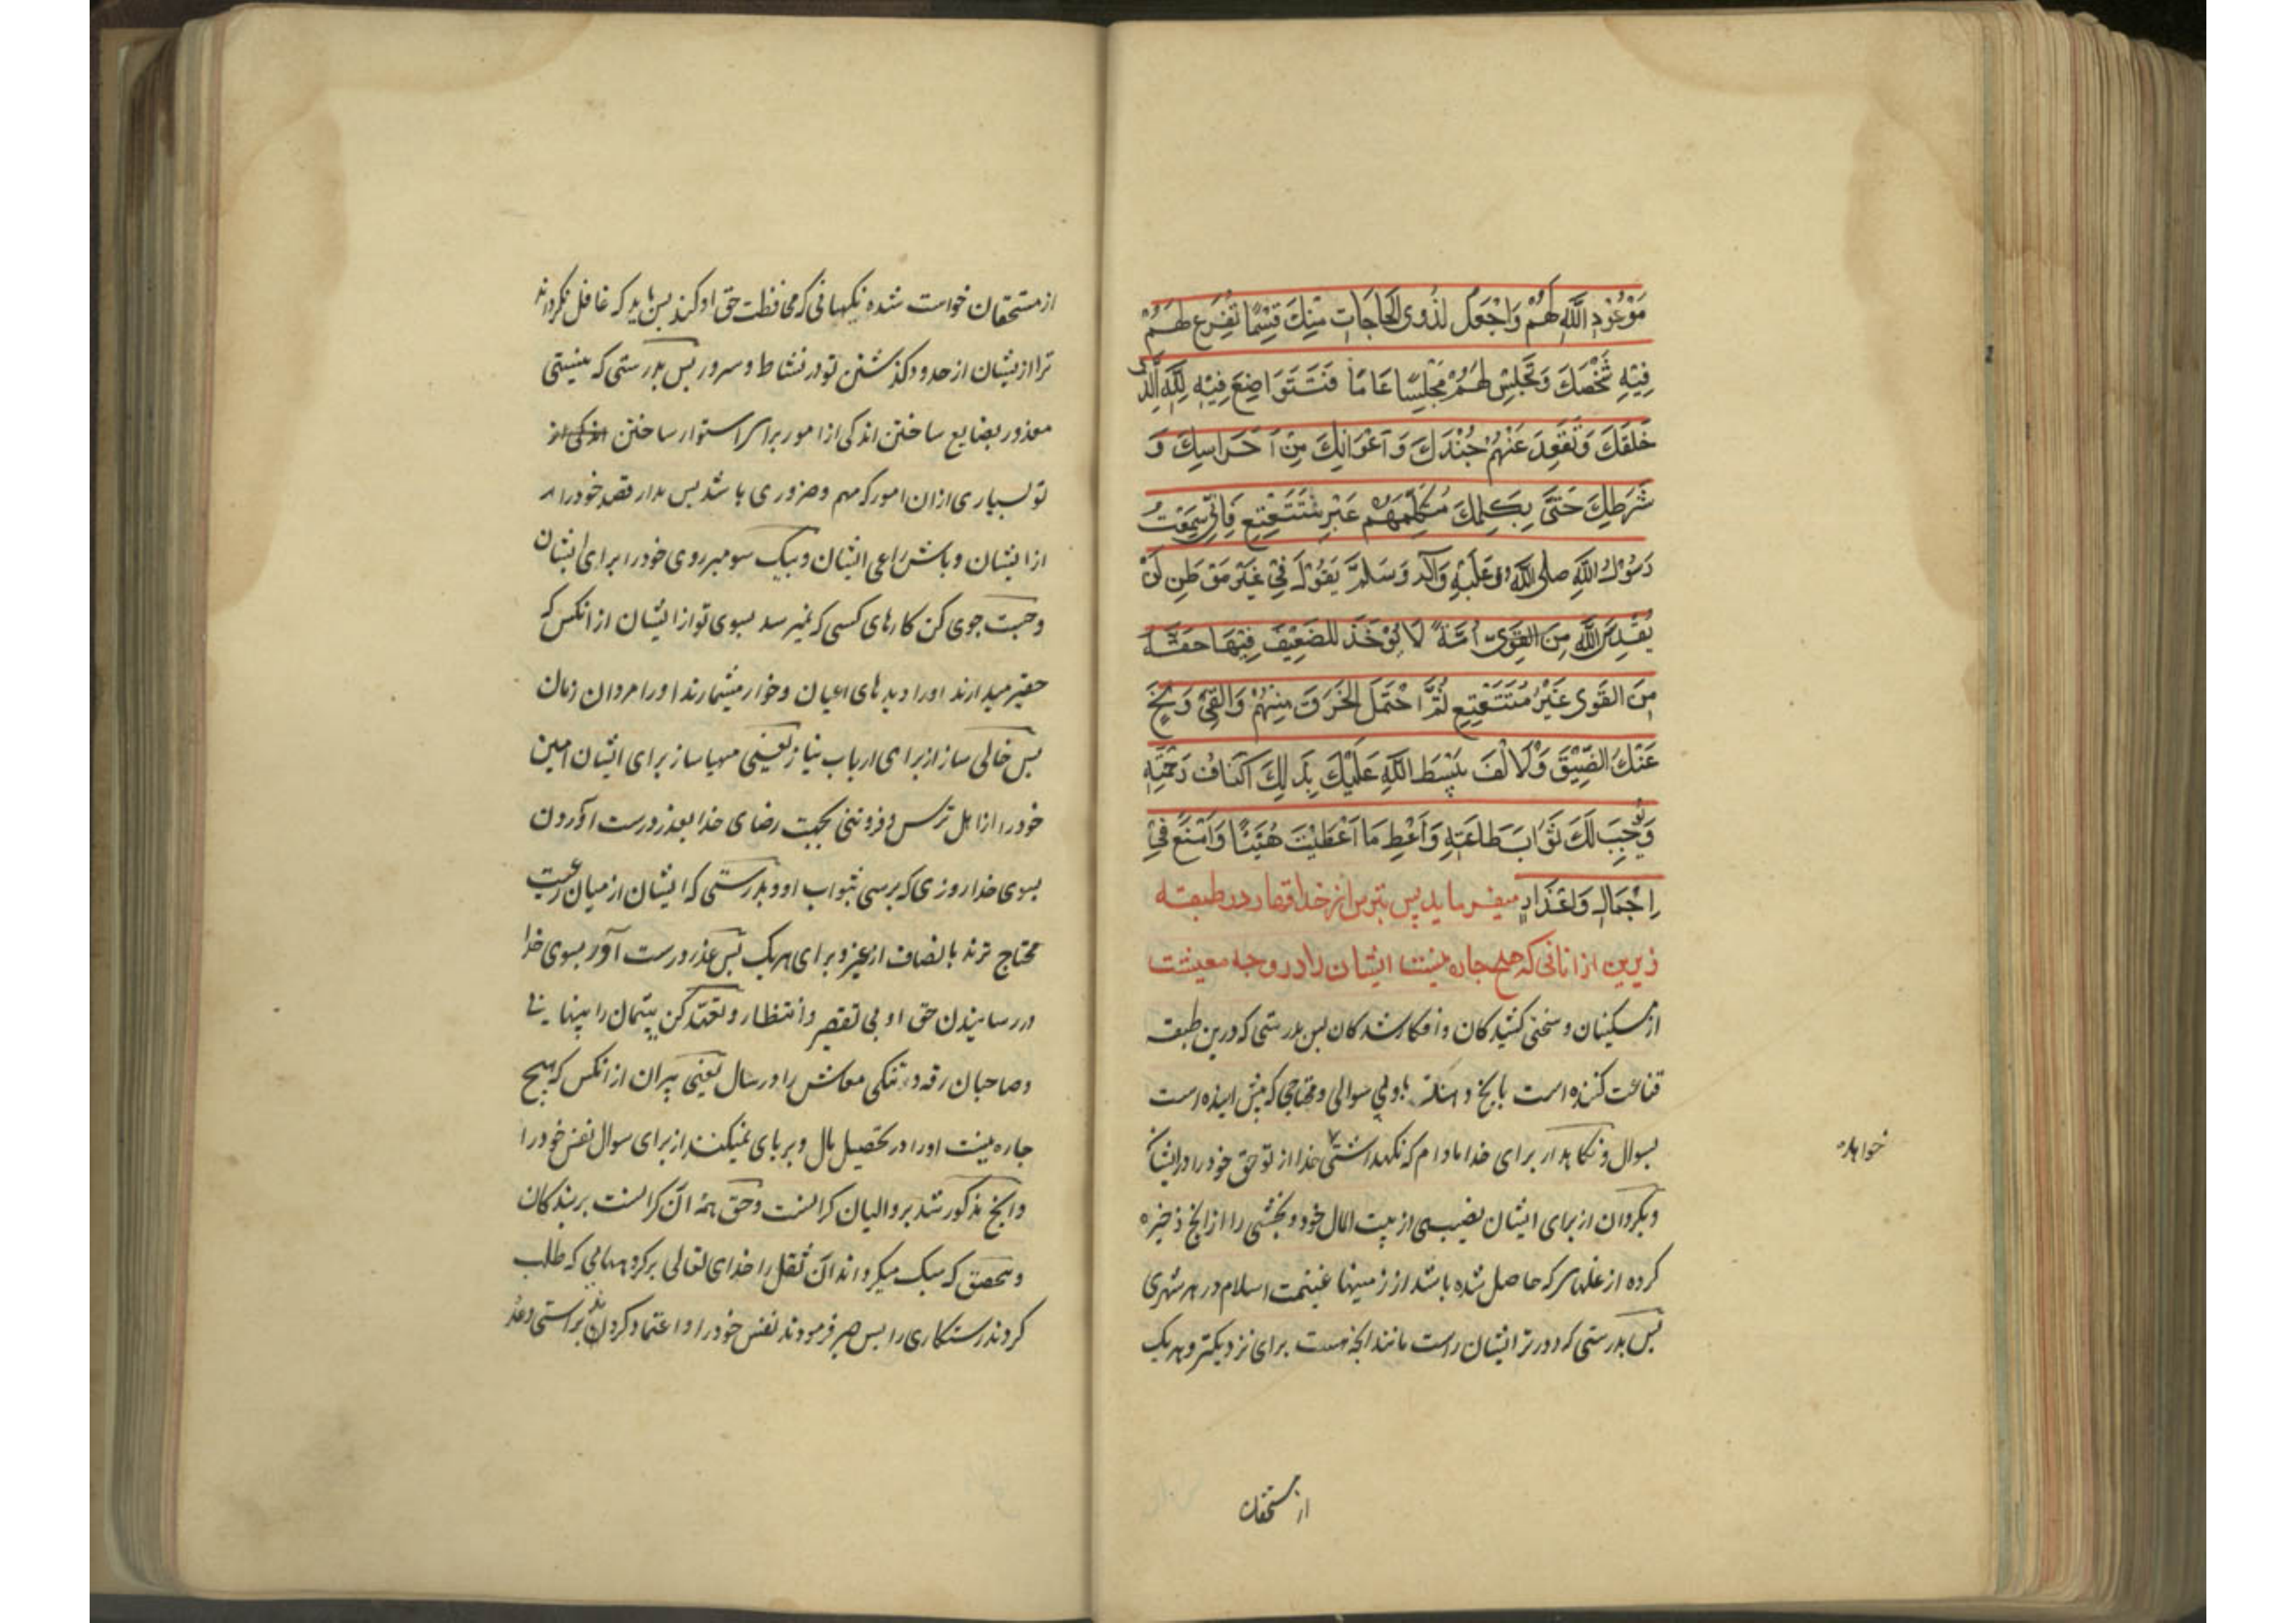 مَوْعُوْدِ اللّٰهِ لَهُمْ وَاجْعَلْ لِذَوِي الْحَاجَاتِ مِنْكَ قِسْمًا تُفَرِّغُ لَهُمْ
فِيْهِ شَخْصَكَ وَتَجْلِسُ لَهُمْ مَجْلِسًا عَامًّا فَتَتَوَاضَعَ فِيْهِ لِلّٰهِ الَّذِي
خَلَقَكَ وَتُقْعِدَ عَنْهُمْ جُنْدَكَ وَاَعْوَانَكَ مِنْ اَحْرَاسِكَ وَ
شُرَطِكَ حَتّٰى يُكَلِّمَكَ مُتَكَلِّمُهُمْ غَيْرَ مُتَتَعْتِعٍ فَاِنِّي سَمِعْتُ
رَسُوْلَ اللّٰهِ صلى اللّٰه عَلَيْهِ وَآلِهِ وَسَلَّمَ يَقُوْلُ فِيْ غَيْرِ مَوْطِنٍ لَنْ
يُقَدِّسَ اللّٰهُ مِنَ الْقَوِيّ اُمَّةً لَا يُؤْخَذُ لِلضَّعِيْفِ فِيْهَا حَقُّهُ
مِنَ الْقَوِي غَيْرُ مُتَتَعْتِعٍ ثُمَّ احْتَمِلِ الْخَرَقَ مِنْهُمْ وَالْعِيَّ وَنَحِّ
عَنْكَ الضِّيْقَ وَالْاَنَفَ يَبْسُطِ اللّٰهُ عَلَيْكَ بِذٰلِكَ اَكْنَافَ رَحْمَتِهِ
وَيُوْجِبُ لَكَ ثَوَابَ طَاعَتِهِ وَاَعْطِ مَا اَعْطَيْتَ هَنِيْئًا وَامْنَعْ فِيْ
اِجْمَالٍ وَاِعْذَارٍ میفرماید پس بترس از خدا در طبقه
زیرین از انانی که هیچ چاره نیست ایشان را در وجه معیشت
از مسکینان و سختی کشیدکان و افکار شدکان پس بدرستی که درین طبقه
قناعت کننده است بی سوالی و محتاجی که است
بسوال و نکاهدار برای خدا مادام که نکهداشتی خدا از تو حق خود را در ایشان
خواهد
و بکردان از برای ایشان نصیبی از بیت المال خود و بخشی را از انچ ذخیره
کرده از غلهای که حاصل شده باشد از زمینها غنیمت اسلام در هر شهری
پس بدرستی که دورتر ایشان راست مانند انچه هست برای نزدیکتر و هر یک
از مستحقان
از مستحقان خواست شده نکهبانی که محافظت حق او کند پس باید که غافل نکرداند
ترا ازیشان از حدود کذشتن تو در نشاط و سرور پس بدرستی که نیستی
معذور بضایع ساختن اندکی از امور برای استوار ساختن
تو بسیاری ازان امور که مهم و ضروری باشد پس مدار قصد خود را
از ایشان و باش راعی ایشان و بیک سو مبر روی خود را برای ایشان
و جست جوی کن کارهای کسی که نمیرسد بسوی تو از ایشان از انکس که
حقیر میدارند او را دیدهای اعیان و خوار میشمارند او را مردان زمان
پس خالی ساز از برای ارباب نیاز یعنی مهیا ساز برای ایشان امین
خود را از اهل ترس و فروتنی بجهت رضای خدا بعذر درست آوردن
بسوی خدا روزی که برسی بثواب او و بدرستی که ایشان از میان رعیت
محتاج ترند بانصاف از غیر و برای هر یک پس عذر درست آور بسوی خدا
در رسانیدن حق او بی تقصیر و انتظار و تعهد کن یتیمان را
و صاحبان رقه و تنکی معاش را در سال یعنی پیران از انکس که هیچ
چاره نیست او را در تحصیل مال و بر پای نمیکنند از برای سوال نفس خود را
و انچ مذکور شد بر والیان کرانست و حق همه آن کرانست بر بندکان
و بتحقیق که سبک میکرداند آن ثقل را خدای تعالی بر کروههایی که طلب
کردند رستکاری را پس صبر فرمودند نفس خود را و اعتماد کردن براستی وعد